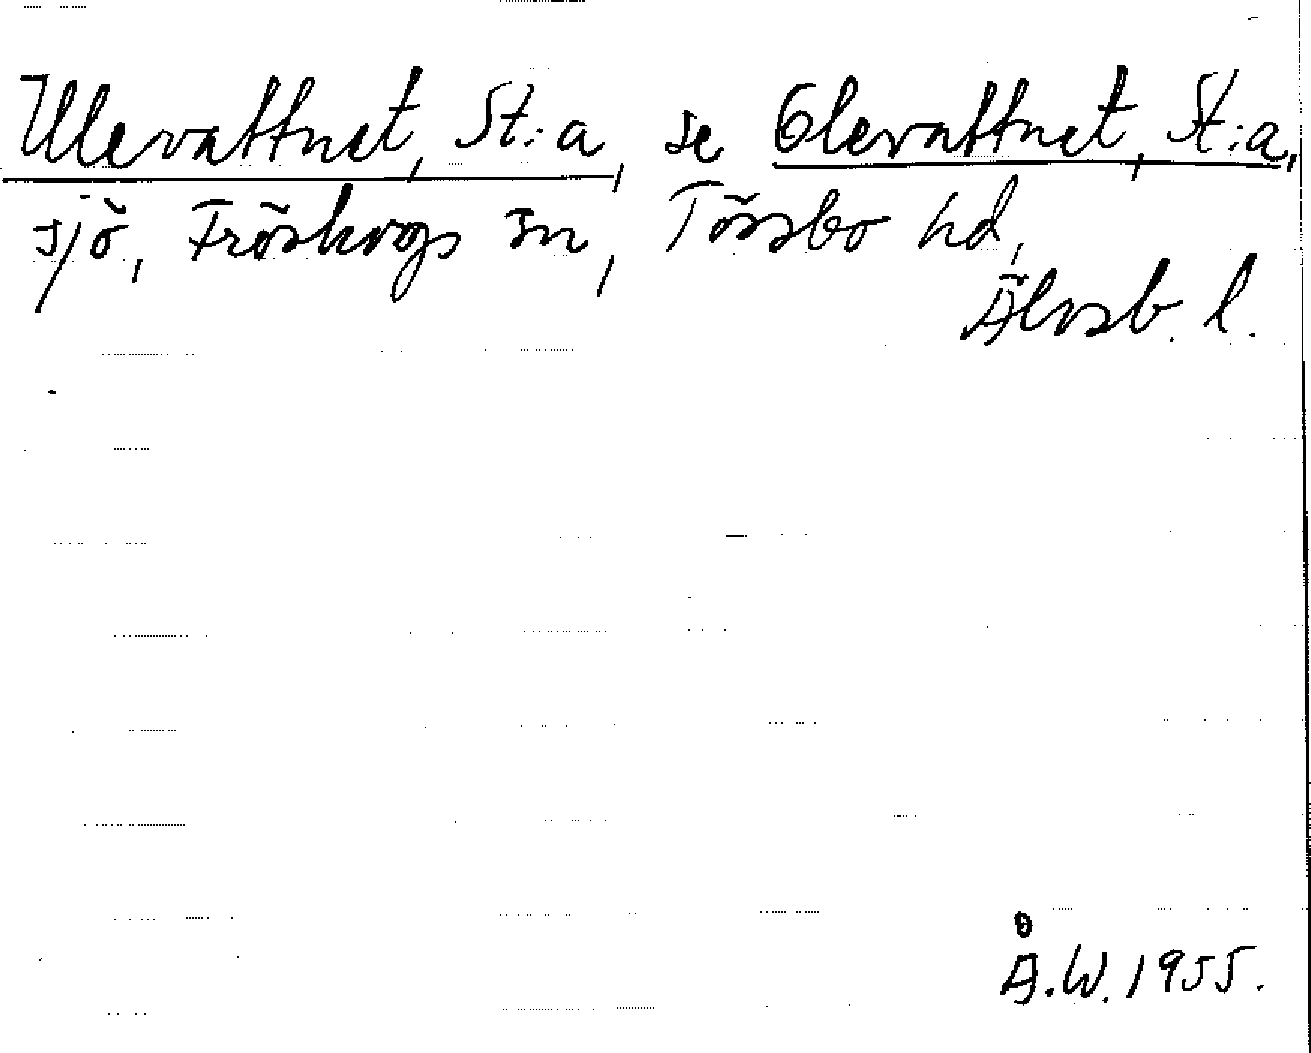 Ulevattnet, St:a, se Olevattnet, St:a,
sjö, Fröskogs sn, Tössbo hd,
Älvsb. l.
Å.W. 1955.